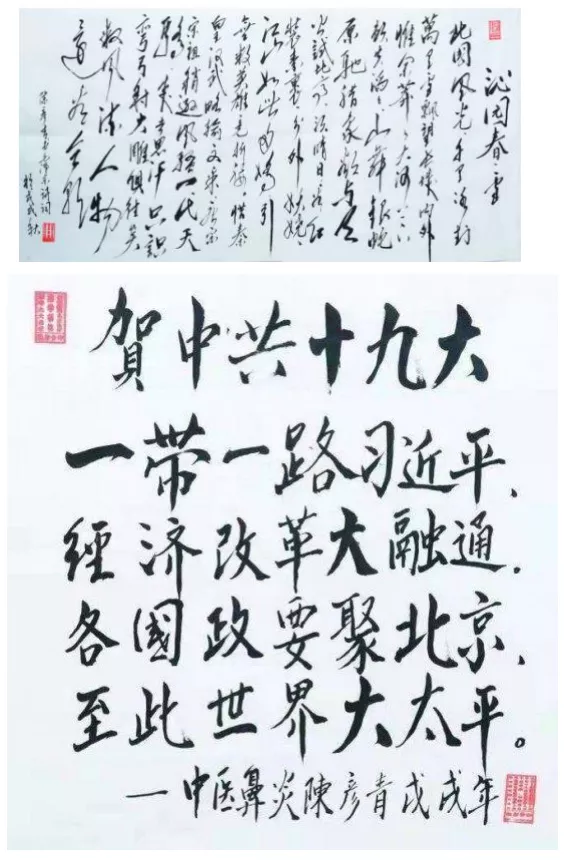 沁园春雪
北国风光千里冰封
萬里雪飘望长城内外
惟余莽々大河上下
顿失滔々山舞银蛇
原驰腊象欲与天
公試比高须晴日看红
装素裹分外妖娆
江山如此多娇引
無数英雄竞折腰惜秦
皇汉武略输文采唐宗
宋祖稍逊风骚一代天
骄成吉思汗只识
弯弓射大雕俱往矣
数风流人物
还看今朝
陈彦青书毛泽东诗词
於戊戌秋
賀中共十九大
一带一路习近平、
經济改革大融通.
各國政要聚北京、
至此世界大太平。
一中医鼻炎陳彦青戊戌年